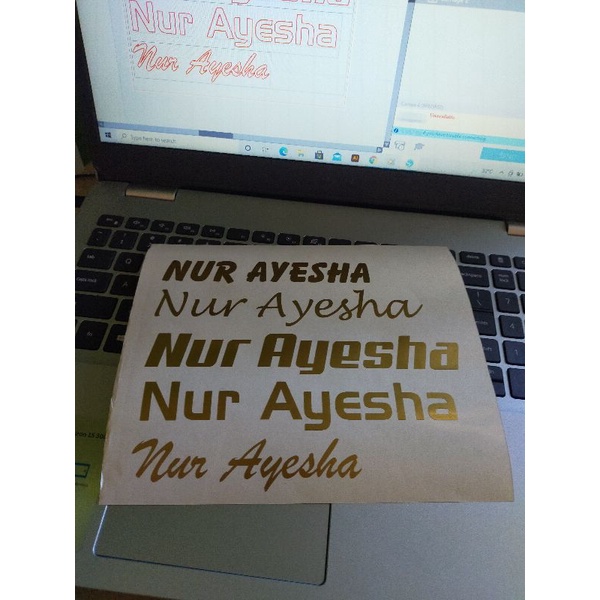 Nur Ayesha
Nur Ayesha
Type here to search
NUR AYESHA
Nur Ayesha
Nur Ayesha
Nur Ayesha
Nur Ayesha